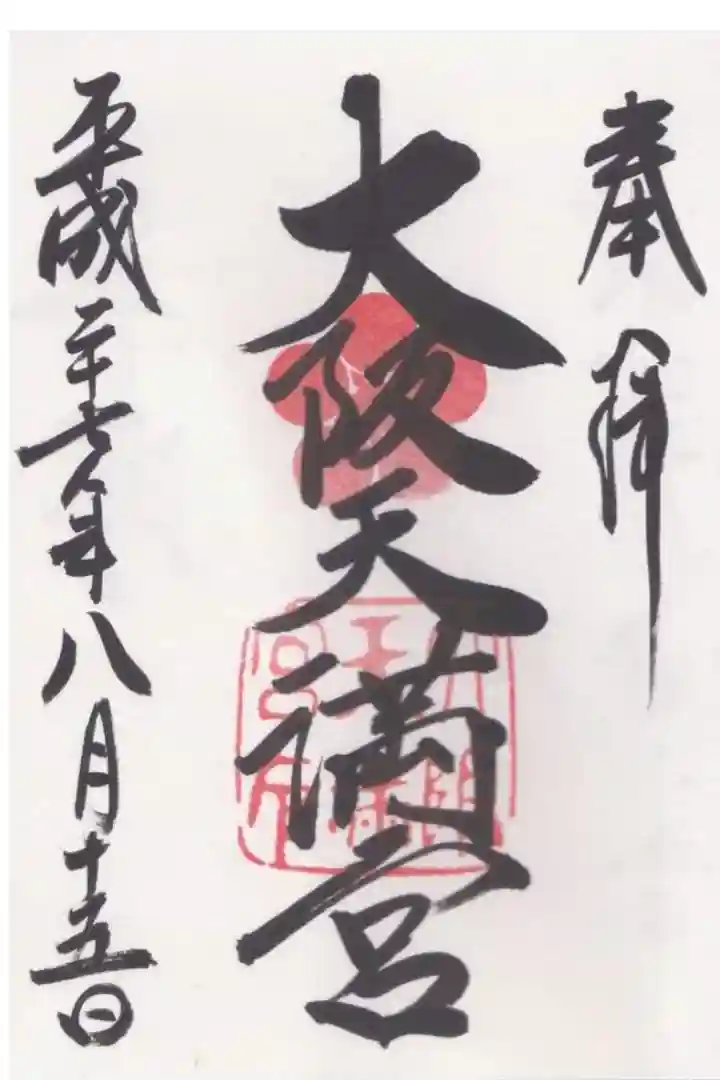 奉拝
大阪天満宮
平成二十七年八月十五日